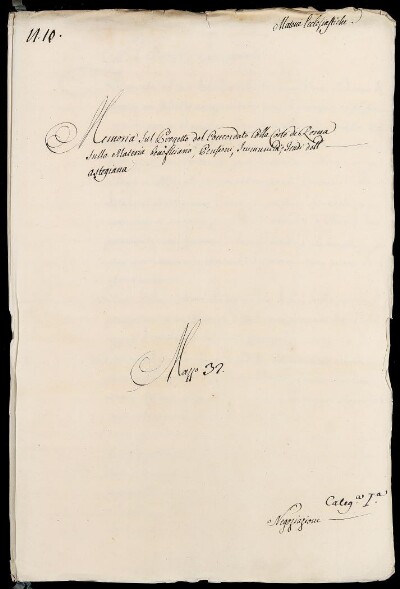 N. 10.
Materie Ecclesiastiche.
Memoria Sul Progetto del Concordato colla Corte di Roma
sulla Materia Beneficiaria, Pensioni, Immunità, Feudi dell'
astegiana
Mazzo 32.
Categ.a 7.a
Negoziazioni